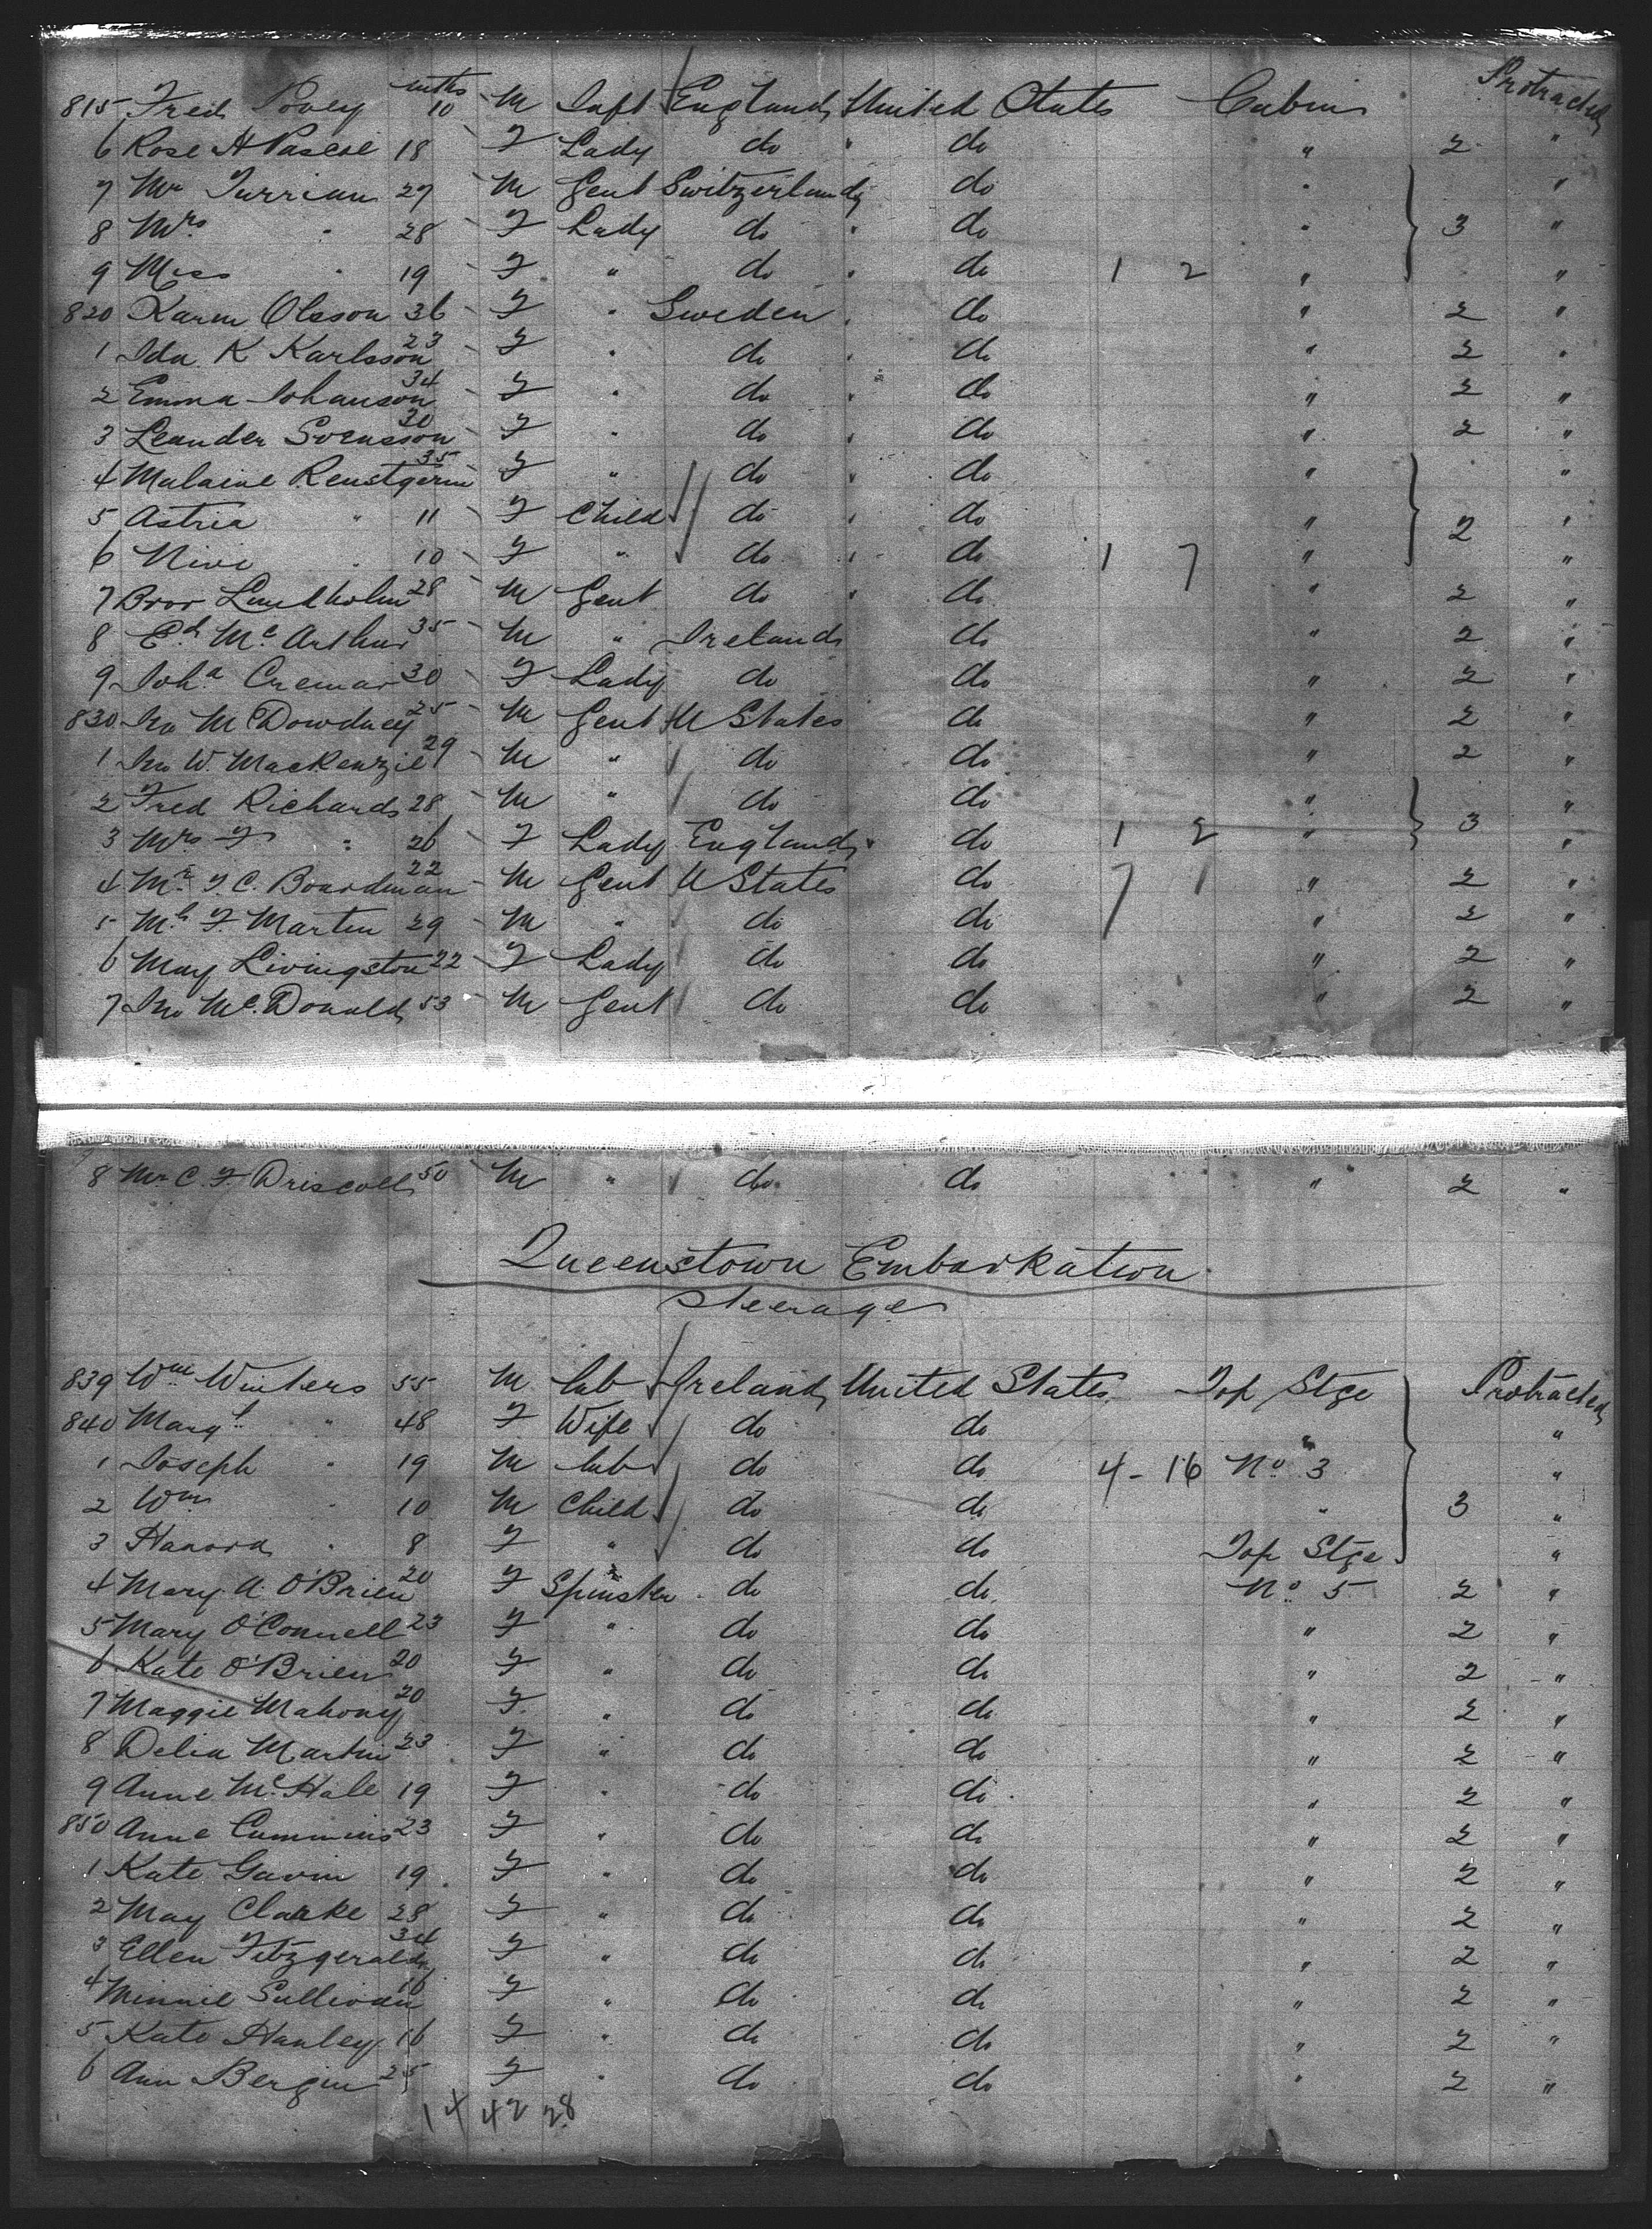 815 Fred Povey mths 10 M Inft England United States Cabin Protracted
6 Rose H Pascoe 18 F Lady do " do " 2 "
7 Mr Turrian 27 M Gent Switzerland do " "
8 Mrs " 28 F Lady do " do " 3 "
9 Miss " 19 F " do " do 1 2 " "
820 Karin Olsson 36 F " Sweden " do " 2 "
1 Ida K Karlsson 23 F " do " do " 2 "
2 Emma Johanson 34 F " do " do " 2 "
3 Leander Svensson 30 F " do " do " 2 "
4 Malaine 35 F " do " do " "
5 Astria " 11 F Child do " do " 2 "
6 " 10 F " do " do 1 7 " "
7 Bror Lindholm 28 M Gent do " do " 2 "
8 Ed McArthur 35 M " Ireland do " 2 "
9 Joha Cremar 30 F Lady do do " 2 "
830 Jno M Dowdney 25 M Gent U States do " 2 "
1 Jno W. MacKenzie 29 M " do do " 2 "
2 Fred Richards 28 M " do do " "
3 Mrs F " 26 F Lady England " do 1 2 " 3 "
4 Mr F. C. Boardman 22 M Gent U States do 7 1 " 2 "
5 F. Martin 29 M " do do " 2 "
6 May Livingston 22 F Lady do do " 2 "
7 Jno McDonald 53 M Gent do do " 2 "
8 Mr C. F. Driscoll 50 M " do do " 2 "
Queenstown Embarkation
Steerage
839 Wm Winters 55 M Lab Ireland United States Top Stge Protracted
840 Margt " 48 F Wife do do " "
1 Joseph " 19 M Lab do do 4 - 16 No 3 "
2 Wm " 10 M Child do do " 3 "
3 Hanora " 8 F " do do Top Stge "
4 Mary A. O'Brien 20 F Spinster do do No 5 2 "
5 Mary O'Connell 23 F " do do " 2 "
6 Kate O'Brien 20 F " do do " 2 "
7 Maggie Mahony 20 F " do do " 2 "
8 Delia Martin 23 F " do do " 2 "
9 Anne McHale 19 F " do do " 2 "
850 Anne Cummins 23 F " do do " 2 "
1 Kate Gavin 19 F " do do " 2 "
2 May Clarke 28 F " do do " 2 "
3 Ellen Fitzgerald 34 F " do do " 2 "
4 Minnie Sullivan 16 F " do do " 2 "
5 Kate Hanley 16 F " do do " 2 "
6 Ann Bergin 25 F " do do " 2 "
14 42 28